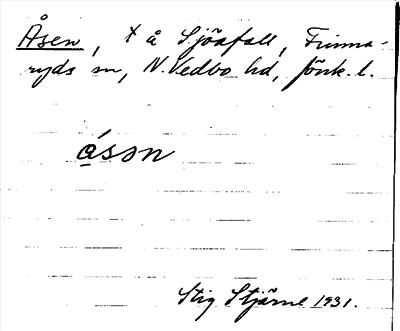 Åsen, × å Sjöafall, Frinna-
ryds sn, N. Vedbo hd, Jönk. l.
ǻsɔn
Stig Stjärne 1931.